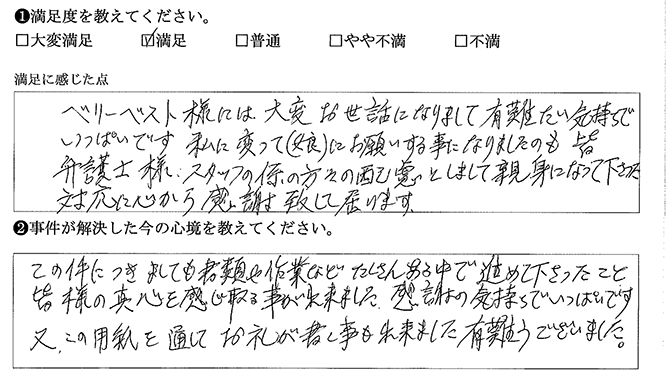 ❶満足度を教えてください。
□大変満足 ☑満足 □普通 □やや不満 □不満
満足に感じた点
ベリーベスト様には大変お世話になりまして有難たい気持ちで
いっぱいです 私に変って(娘)にお願いする事になりましたのも 皆
弁護士様、スタッフの係の方々の配慮としまして親身になって下さった
対応に心から感謝致して居ります。
❷事件が解決した今の心境を教えてください。
この件につきましても書類や作業など たくさんある中で進めて下さったこと
皆様の真心を感じ取る事が出来ました。感謝の気持ちでいっぱいです
又、この用紙を通してお礼が書く事も出来ました有難うございました。